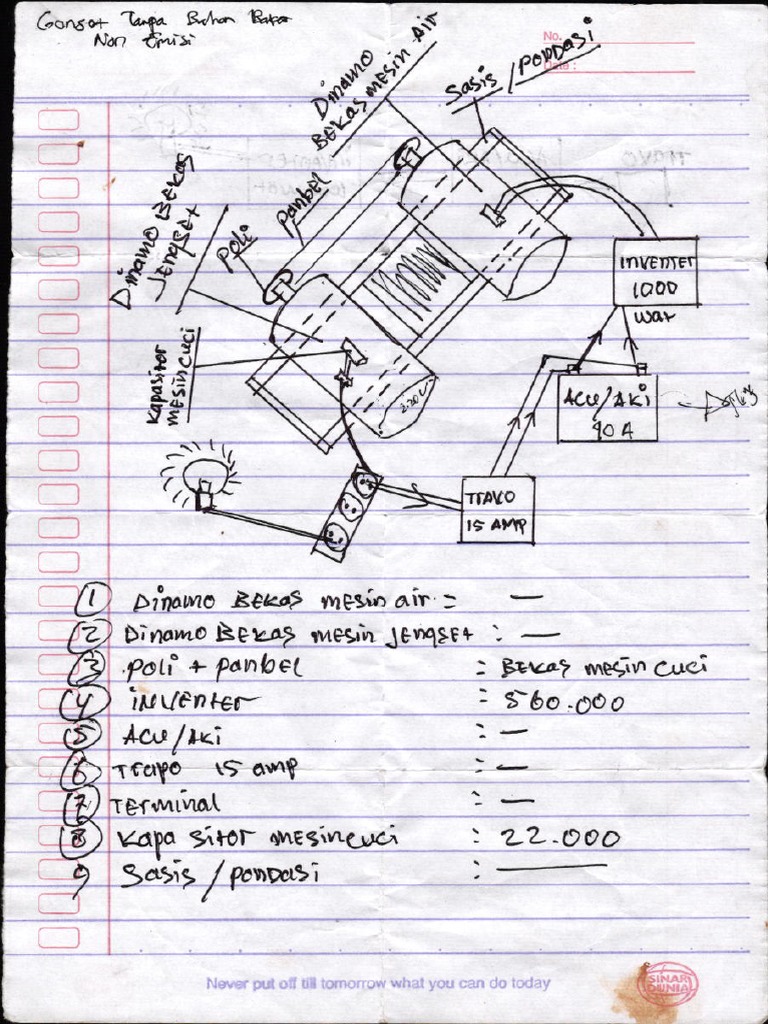 Genset Tanpa Bahan Bakar
Non Emisi
No.
Date :
DINAMO
BEKAS MESIN AIR
SASIS / PONDASI
DINAMO BEKAS
JENGSET
POLI
PANBEL
KAPASITOR
MESIN CUCI
INVENTER
1000
WAT
ACU/AKI
90 A
220V
TRAVO
15 AMP
1 DINAMO BEKAS MESIN AIR : —
2 DINAMO BEKAS MESIN JENGSET : —
3 POLI + PANBEL : BEKAS MESIN CUCI
4 INVENTER : 560.000
5 ACU/AKI : —
6 TRAPO 15 AMP : —
7 TERMINAL : —
8 KAPA SITOR MESIN CUCI : 22.000
9 SASIS / PONDASI : —
Never put off till tomorrow what you can do today
SINAR
DUNIA